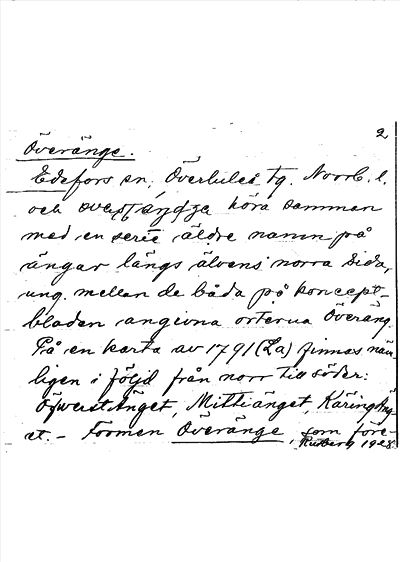 2
Överänge.
Edefors sn, Överluleå tg. Norrb. l.
och höra samman
med en serie äldre namn på
ängar längs älvens norra sida,
ung. mellan de båda på koncept-
bladen angivna orterna Överäng.
På en karta av 1791 (La) finnas näm-
ligen i följd från norr till söder:
Öfwerst Änget, Mittiänget, Käring Äng
et. – Formen Överänge, som före-
Rutberg 1928